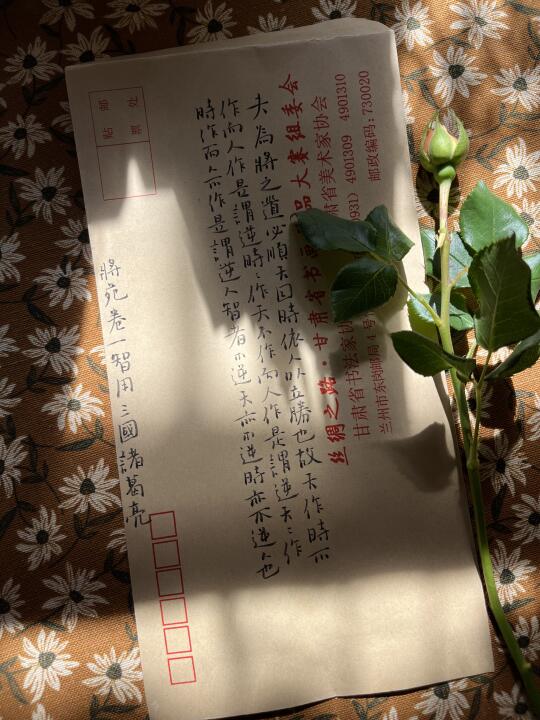 夫為將之道必順天因時依人以立勝也故天作時不
作而人作是謂逆時〻作天不作而人作是謂逆天〻作
時作而人不作是謂逆人智者不逆天亦不逆時亦不逆人也
將苑卷一智用三國諸葛亮
贴邮
票处
丝绸之路·甘肃省书画品大赛组委会
甘肃省书法家协 肃省美术家协会
兰州市东岗邮局4号 0931) 4901309 4901310
邮政编码:730020